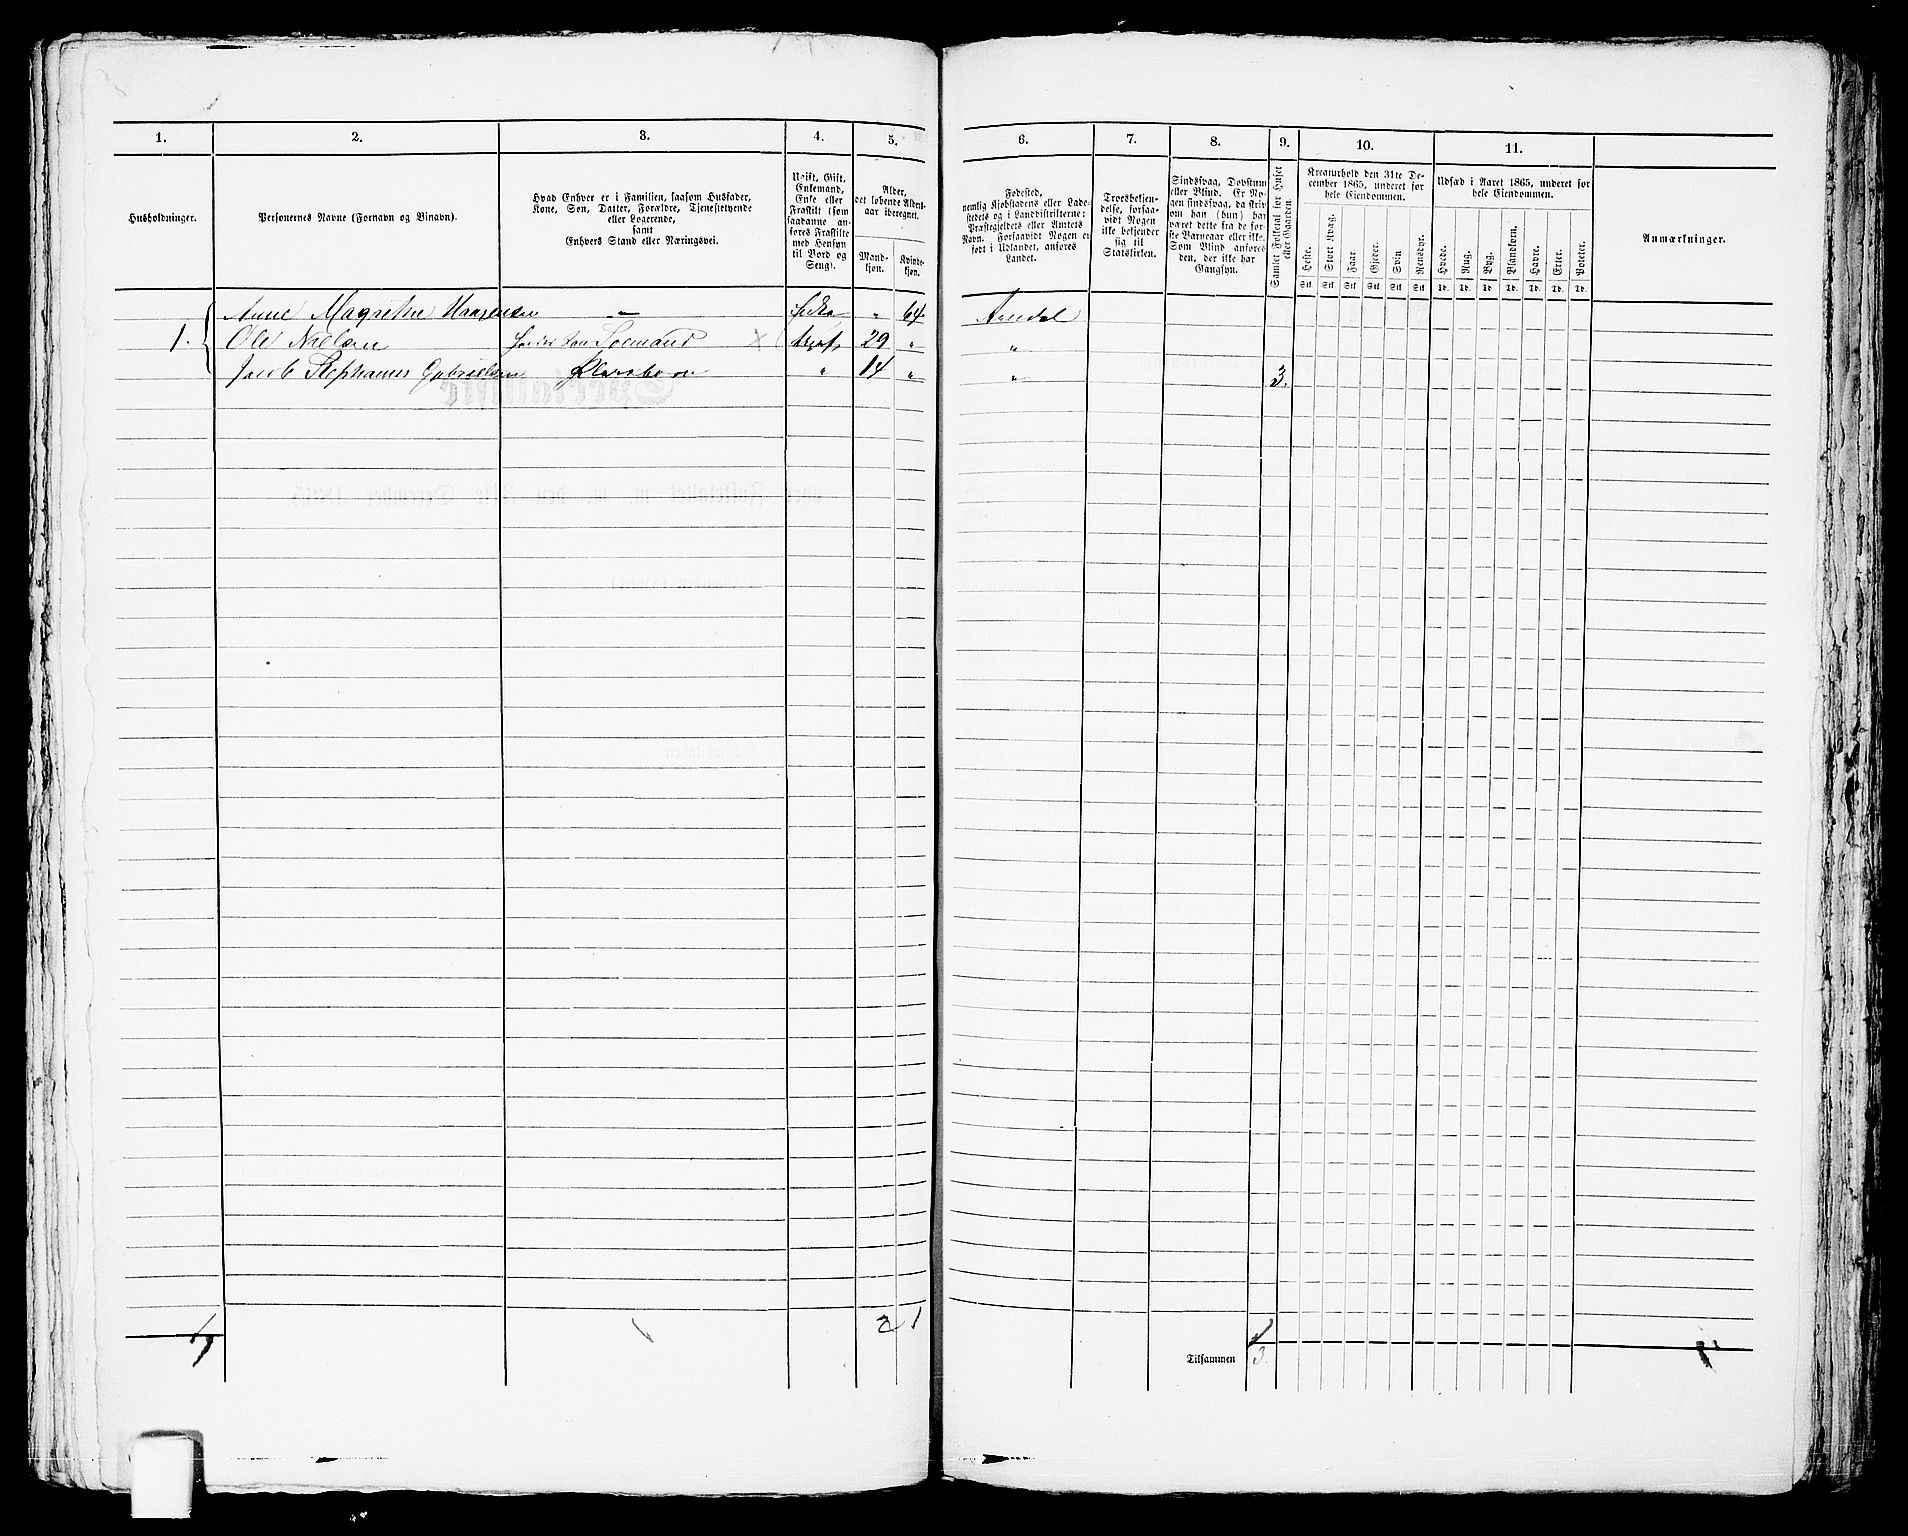 1.
2.
3.
4.
5.
6.
7.
8.
9.
10.
11.
Husholdninger.
Personernes Navne (Fornavn og Binavn).
Hvad Enhver er i Familien, saasom Husfader,
Kone, Søn, Datter, Forældre, Tjenestetyende
eller Logerende,
samt
Enhvers Stand eller Næringsvei.
Ugift, Gift,
Enkemand,
Enke eller
Fraskilt (som
saadanne an-
føres Fraskilte
med Hensyn
til Bord og
Seng).
Alder,
det løbende Alders-
aar iberegnet.
Mand-
kjøn.
Kvinde-
kjøn.
Fødested,
nemlig Kjøbstadens eller Lade-
stedets og i Landdistrikterne:
Præstegjeldets eller Amtets
Navn. Forsaavidt Nogen er
født i Udlandet, anføres
Landet.
Troesbekjen-
delse, forsaa-
vidt Nogen
ikke bekjender
sig til
Statskirken.
Sindssvag, Døvstum
eller Blind. Er No-
gen sindssvag, da skriv
om han (hun) har
været dette fra de før-
ste Barneaar eller ikke.
Som Blind anføres
den, der ikke har
Gangsyn.
Samlet Folketal for Huset
eller Gaarden.
Kreaturhold den 31te De-
cember 1865, underet for
hele Eiendommen.
Heste.
Stort Kvæg.
Faar.
Gjeder.
Svin.
Rensdyr.
Stk Stk Stk Stk Stk Stk
Udsæd i Aaret 1865, underet for
hele Eiendommen.
Hvede.
Rug.
Byg.
Blandkorn.
Havre.
Erter.
Poteter.
Td. Td. Td. Td. Td. Td. Td.
Anmærkninger.
Anne Magrethe " Enke " 64 Arendal
1. Ole Nielsen Søemand Ugift 29 " "
Jacob Stephanus Gabrielsen " 14 " " 3.
2 1
Tilsammen 3.